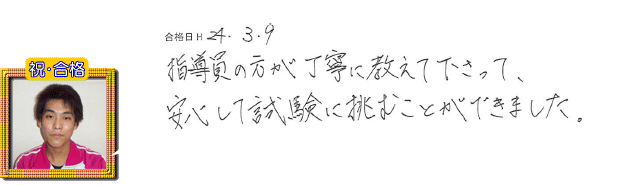 合格日 H 24. 3. 9
祝・合格
指導員の方が丁寧に教えて下さって、
安心して試験に挑むことができました。